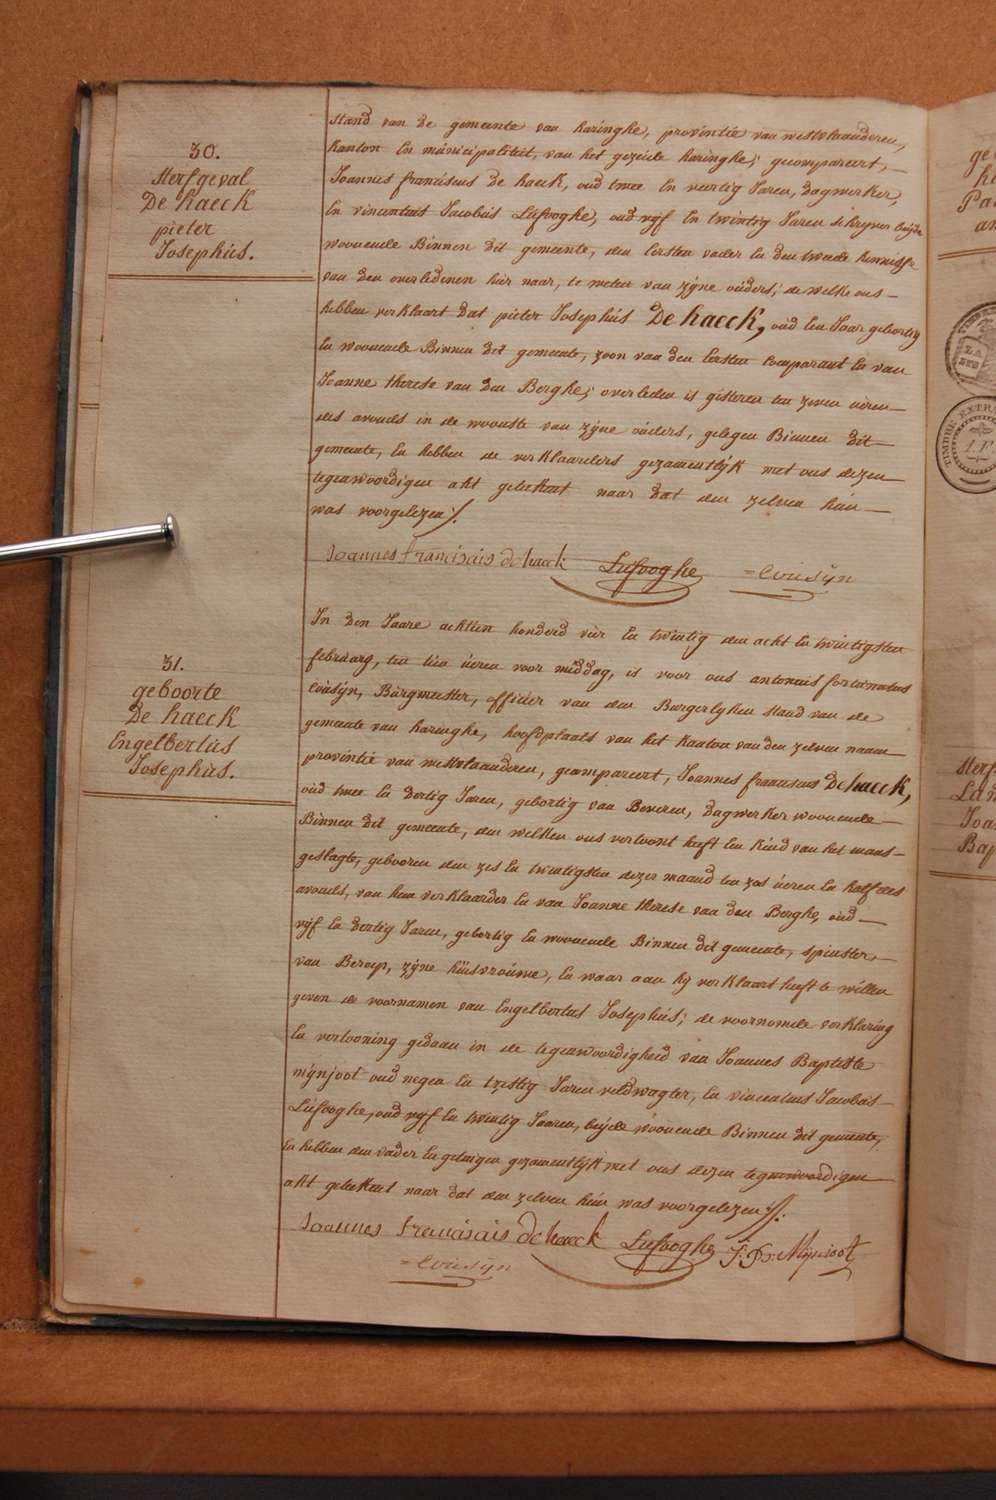 30.
sterfgeval
De haeck
pieter
Josephus.
stand van de gemeente van haringhe, provintie van westvlaanderen,
kanton En municipaliteit, van het gezeide haringhe; gecompareert,
Joannes franciscus De haeck, oud twee En veertig Jaren, dagwerker,
En vincentius Jacobus Lefooghe, oud vyf En twintig Jaren schryver beyde
woonende Binnen dit gemeente, den Eersten vader En den tweede kennisse
van den overledenen hier naer, te weten van zyne ouders; de welke ons
hebben verklaert dat pieter Josephus De haeck, oud Een Jaer geboortig
En woonende Binnen dit gemeente, zoon van den Eersten Comparant En van
Joanne therese van den Berghe; overleden is gisteren ten zeven uren
des avonds in de woonste van zyne ouders, gelegen Binnen dit
gemeente, En hebben de verklaerders gezamentlyk met ons dezen
tegenwoordigen akt geteekent naer dat den zelven hun
was voorgelezen /.
Joannes francisais de haeck Lefooghe =Cousyn
31.
geboorte
De haeck
Engelbertus
Josephus.
In den Jaare achtien honderd vier En twintig den acht En twintigsten
februarÿ, ten tien uren voor middag, is voor ons antonius fortunatus
Cousÿn, Burgmeester, officier van den Burgerlyken stand van de
gemeente van haringhe, hoofdplaats van het kanton van den zelven naem
provintie van westvlaanderen, gecompareert, Joannes franciscus De haeck,
oud twee En dertig Jaren, geboortig van Beveren, dagwerker woonende
Binnen dit gemeente, den welken ons vertoont heeft Een kind van het mans-
geslagte, gebooren den zes En twintigsten dezer maand ten zes uren En half des
avonds, van hem verklaarder En van Joanne therese van den Berghe, oud
vyf En dertig Jaren, geboortig En woonende Binnen dit gemeente, spinster,
van Beroep, zÿne huisvrouwe, En waar aan hy verklaart heeft te willen
geven de voornamen van Engelbertus Josephus; de voornomde verklaring
En vertooning gedaan in de tegenwoordigheid van Joannes Baptiste
mÿnjoot oud negen En tzestig Jaren veldwagter, En vincentius Jacobus
Lefooghe, oud vyf En twintig Jaaren, beÿde woonende Binnen dit gemeente,
En hebben den vader En getuigen gezamentlÿk met ons dezen tegenwoordigen
akt geteekent naer dat den zelven hun was voorgelezen /.
Joannes francisais de haeck Lefooghe J: Bt: Mijnjoot
=Cousÿn
ge
Pa
an
TIMBRE EXTRA
sterf
Lan
Joa
Bap